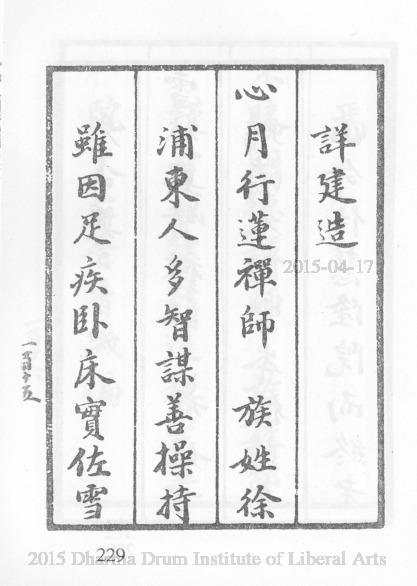 詳建造
心月行蓮禪師 族姓徐
浦東人多智謀善操持
雖因足疾臥床實佐雪
一百十五
229
2015-04-17
2015 Dharma Drum Institute of Liberal Arts